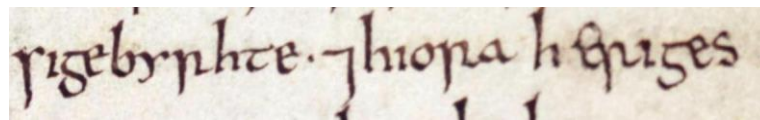 sigebyrhte · ⁊ hiora h eriges